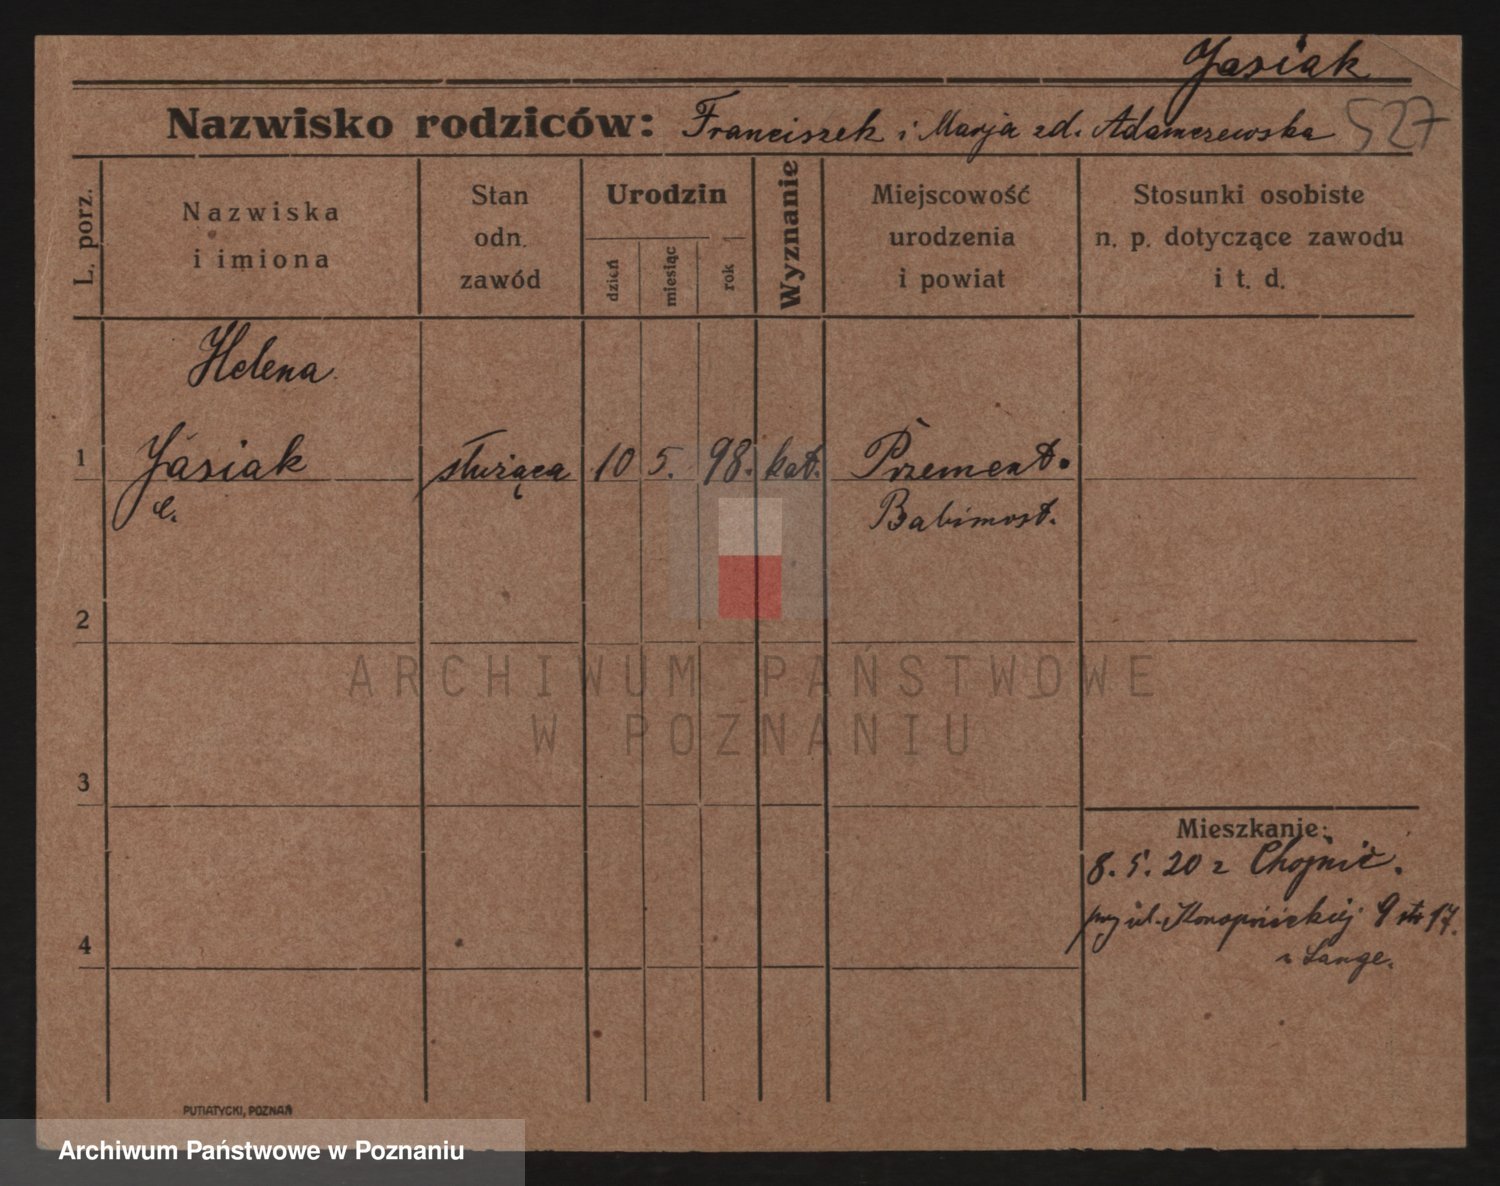 Jasiak
Nazwisko rodziców: Franciszek i Marja zd. Adamczewska 527
L. porz.
Nazwiska
i imiona
Stan
odn.
zawód
Urodzin
dzień
miesiąc
rok
Wyznanie
Miejscowość
urodzenia
i powiat
Stosunki osobiste
n. p. dotyczące zawodu
i t. d.
Helena
1 Jasiak służąca 10 5. 98. kat. Przement.
c. Babimost.
2
ARCHIWUM PAŃSTWOWE
W POZNANIU
3
Mieszkanie:
8. 5. 20 z Chojnic.
przy ul. Konopnickiej 9 17.
Lange.
4
PUTIATYCKI, POZNAŃ
Archiwum Państwowe w Poznaniu